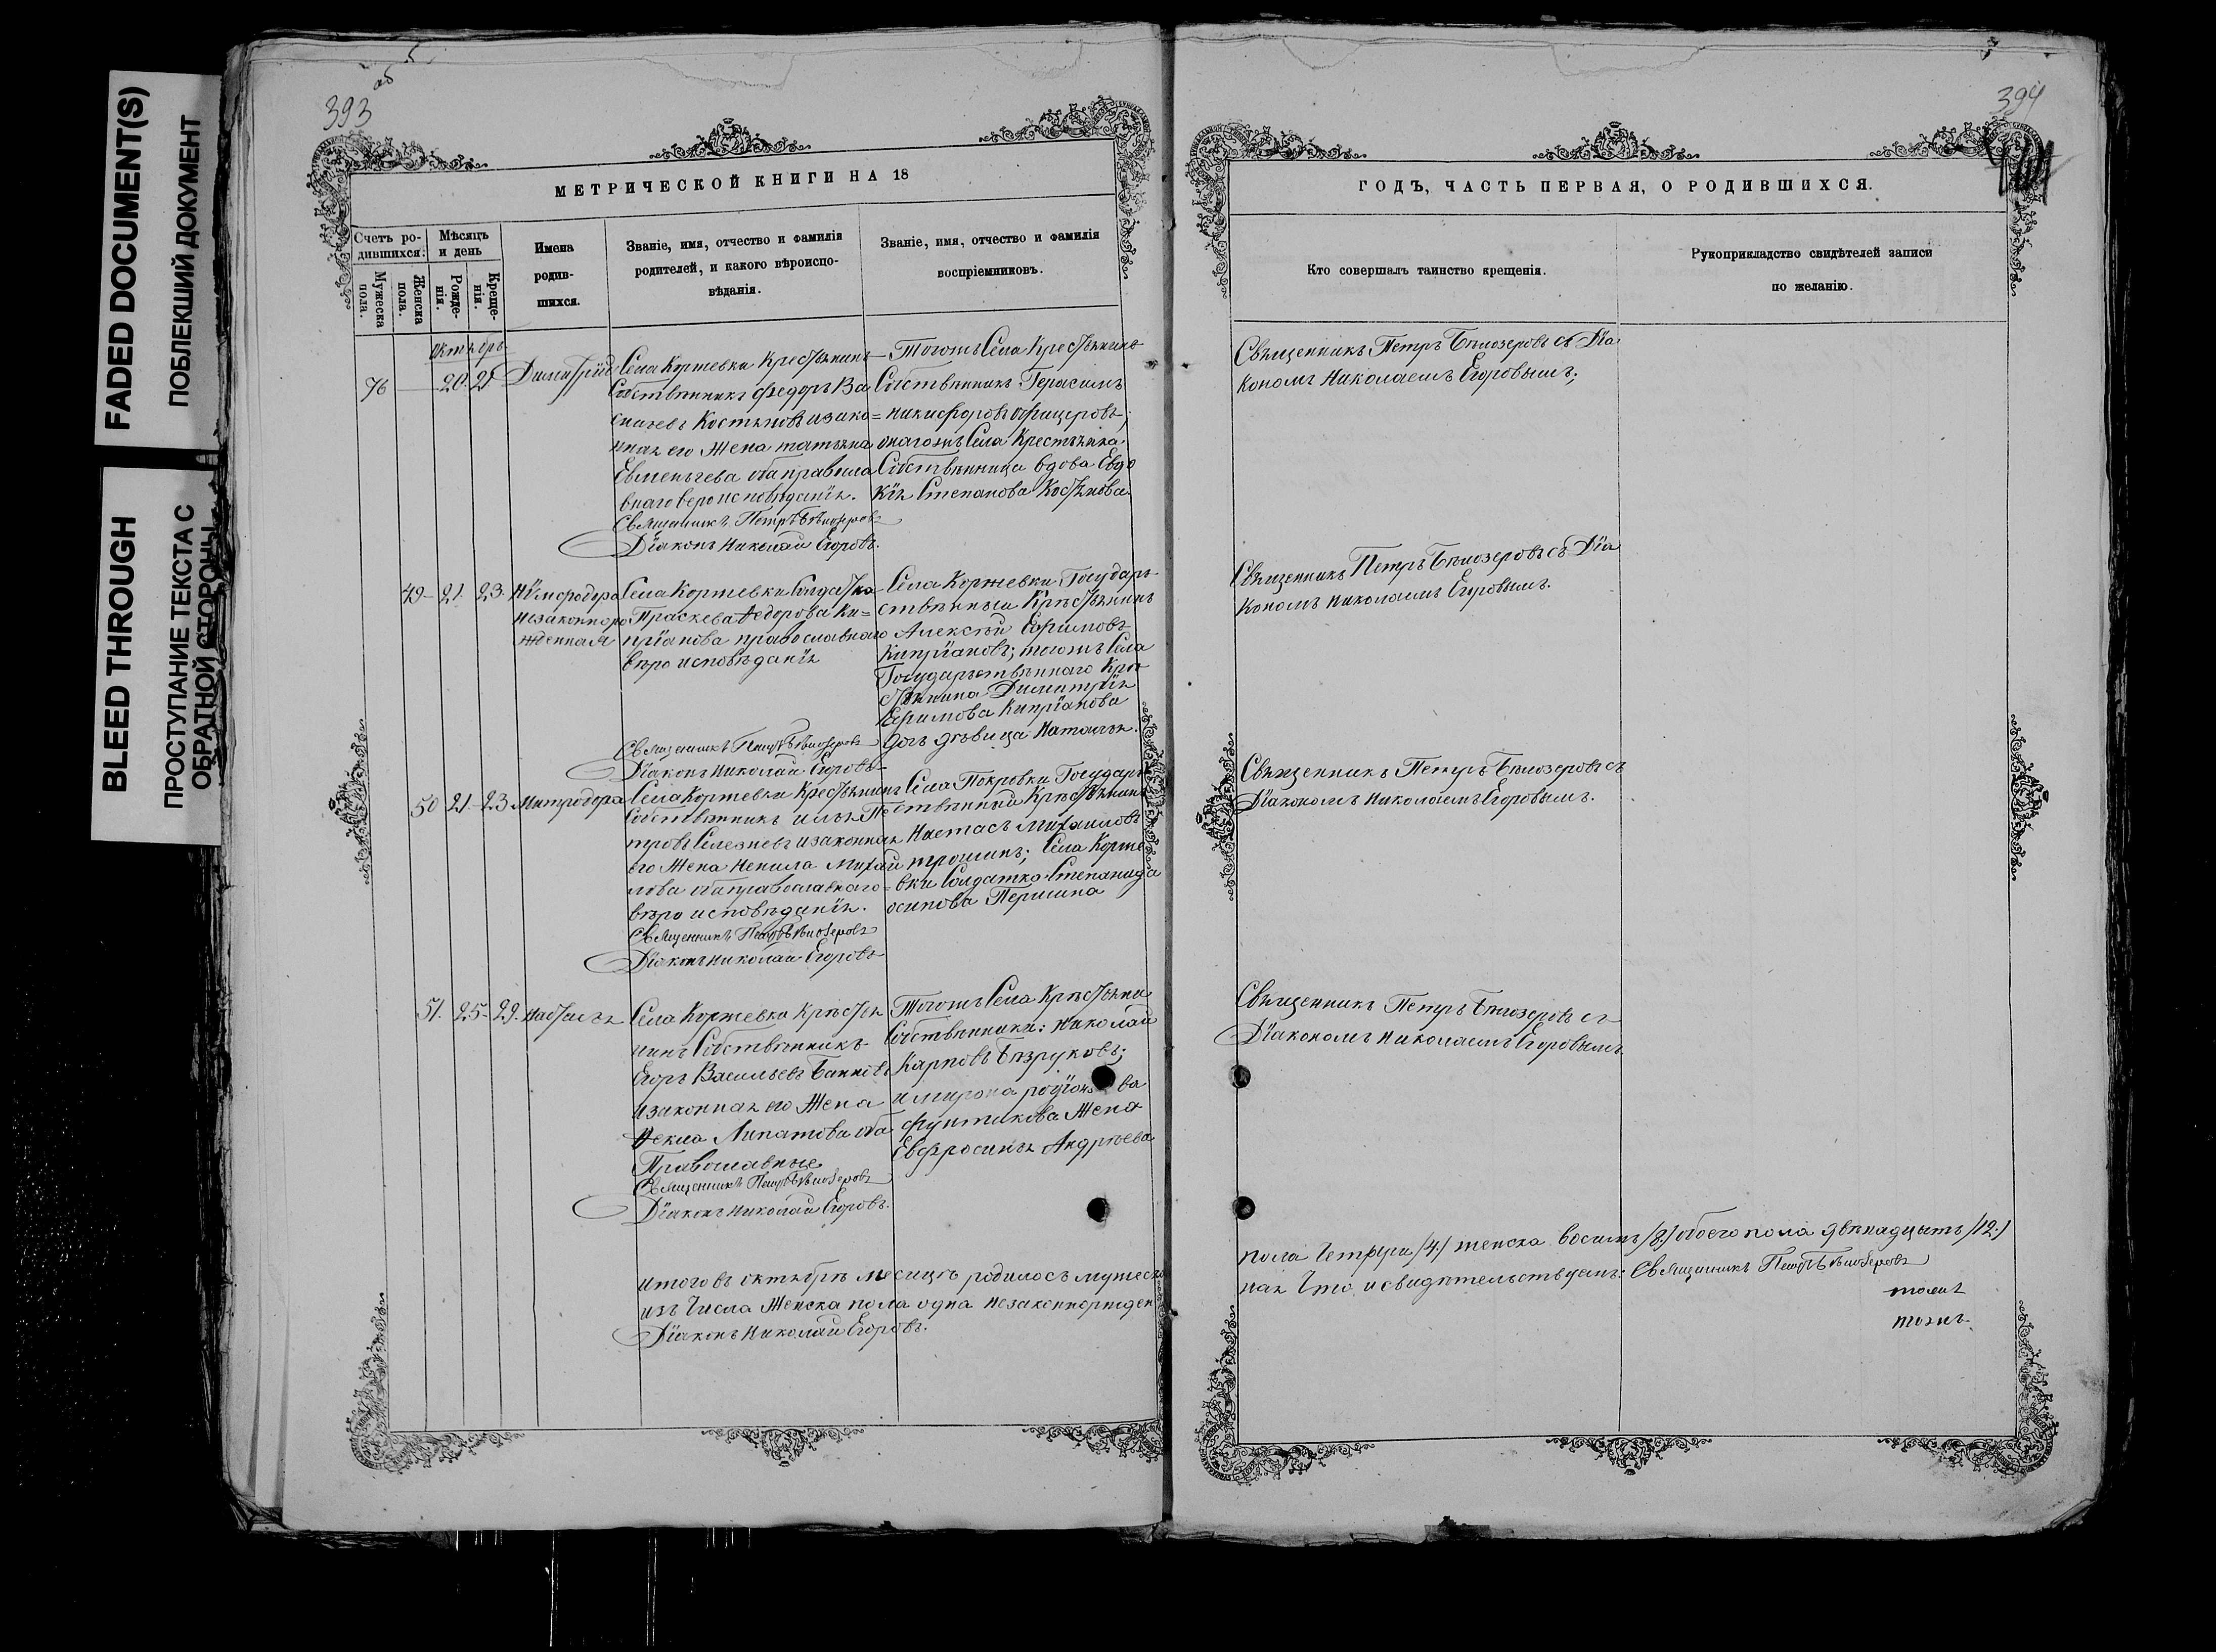 FADED DOCUMENT(S)
ПОБЛЕКШИЙ ДОКУМЕНТ
BLEED THROUGH
ПРОСТУПАНИЕ ТЕКСТА С
ОБРАТНОЙ СТОРОНЫ
393
об 5.
МЕТРИЧЕСКОЙ КНИГИ НА 18
Счетъ ро-
дившихся.
Мужеска
пола.
Женска
пола.
Мѣсяцъ
и день
Рожде-
нія.
Креще-
нія.
Имена
родив-
шихся.
Званіе, имя, отчество и фамилія
родителей, и какого вѣроиспо-
вѣданія.
Званіе, имя, отчество и фамилія
воспріемниковъ.
Октябрь
76 20. 21 Димитрій
Села Коржевки Крестьянинъ
Собственникъ Федоръ Ва
сильевъ Костяновъ изако=
нная его Жена татьяна
Евменьева оба
внаго вероисповѣданія.
Священникъ Петръ Бѣлозеровъ
Діаконъ Николай Егоровъ.
Тогожъ Села Крестьянинъ
Собственникъ Герасимъ
никифоровъ офицеровъ;
онагожъ Села Крестьянка
Собственница вдова Евдо
кія Степанова Костянова.
49 21. 23.
незаконноро
жденная
Села Коржевки Солдатка
Праскева Ѳедорова Ки=
пріанова православнаго
вѣроисповѣданія
Священникъ Петръ Бѣлозеровъ
Діаконъ Николай Егоровъ
Села Коржевки Государ
ственный Крестьянинъ
Алексѣй Ефимовъ
Кипріановъ; тогожъ Села
Государственнаго Кре
стьянина Димитрія
Ефимова Кипріанова
дочь дѣвица Наталья.
50 21. 23 Митродора
Села Коржевки Крестьянинъ
Собственникъ илья Пе
тровъ Селезневъ изаконная
его Жена Ненила Михай
лова оба православнаго=
вѣроисповѣданія.
Священникъ Петръ Бѣлозеровъ
Діаконъ Николай Егоровъ
Села Покровки Государ
ственный Крестьянинъ
Михаиловъ
трошинъ; Села Корже
вки Солдатка Степанида
осипова Першина
51. 25. 29. Настасья
Села Коржевки Крестья
нинъ Собственникъ
Егоръ Васильевъ
изаконная его Жена
Ѳекла Липатова оба
Православные
Священникъ Петръ Бѣлозеровъ
Діаконъ Николай Егоровъ.
Тогожъ Села Крестьяни
Собственники: Николай
Карповъ Безруковъ;
имирона родіонова
фунтикова Жена
Евфросинья Андрѣева
итого въ октябрѣ месяцѣ родилось мужеска
изъ числа Женска пола одна незаконнорожден
Діаконъ Николай Егоровъ.
394
ГОДЪ, ЧАСТЬ ПЕРВАЯ, О РОДИВШИХСЯ.
Кто совершалъ таинство крещенія.
Рукоприкладство свидѣтелей записи
по желанію.
Священникъ Петръ Бѣлозеровъ съ Діа
кономъ Николаемъ Егоровымъ;
Священникъ Петръ Бѣлозеровъ съ Діа
кономъ Николаемъ Егоровымъ.
Священникъ Петръ Бѣлозеровъ съ
Діакономъ Николаемъ Егоровымъ.
Священникъ Петръ Бѣлозеровъ съ
Діакономъ Николаемъ Егоровымъ.
пола Четыри /4./ женска восимъ /8./ обоего пола двѣнадцать /12./
ная Что исвидѣтельствуемъ: Священникъ Петръ Бѣлозеровъ
тожъ